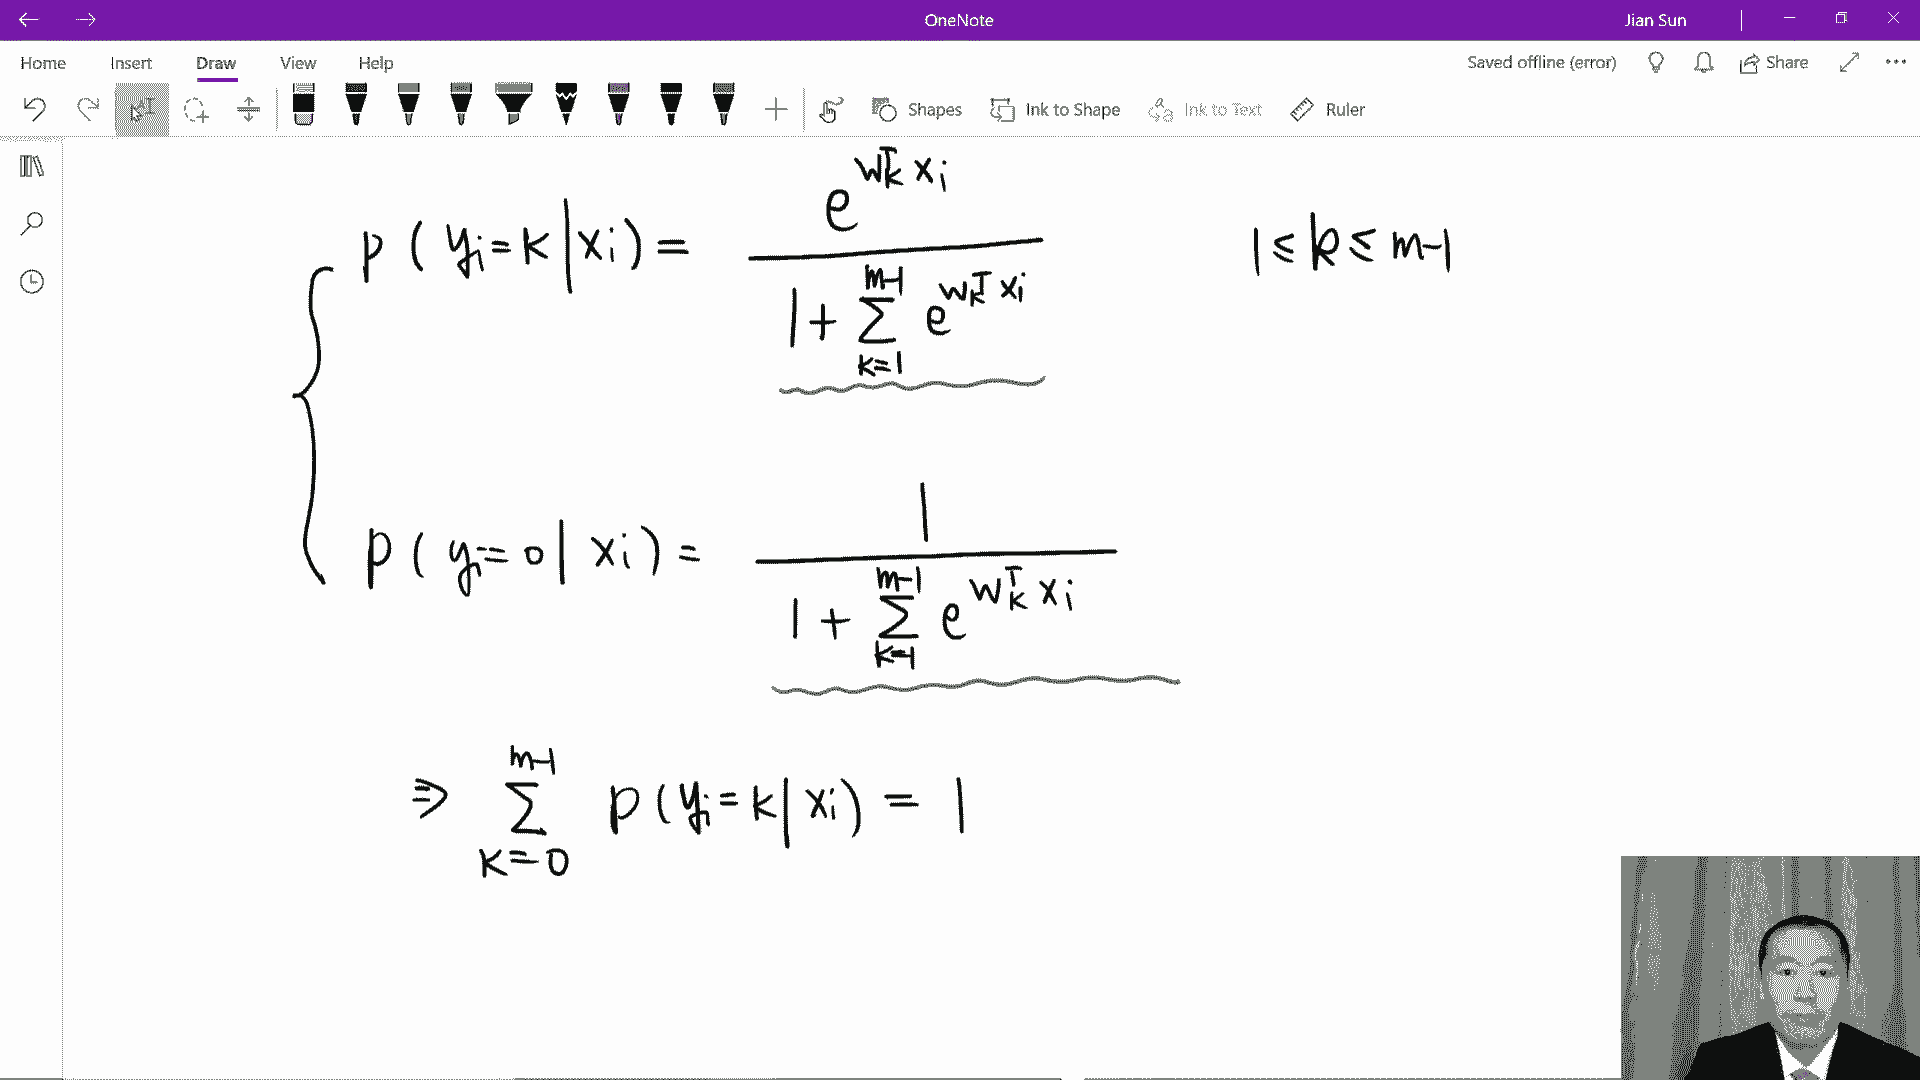 OneNote
Jian Sun
Home Insert Draw View Help
Saved offline (error) Share
Shapes Ink to Shape Ink to Text Ruler
p(y_i=k|x_i) = e^{w_k^T x_i} / (1 + \sum_{k=1}^{m-1} e^{w_k^T x_i}) 1 ≤ k ≤ m-1
p(y_i=0|x_i) = 1 / (1 + \sum_{k=1}^{m-1} e^{w_k^T x_i})
⇒ \sum_{k=0}^{m-1} p(y_i=k|x_i) = 1